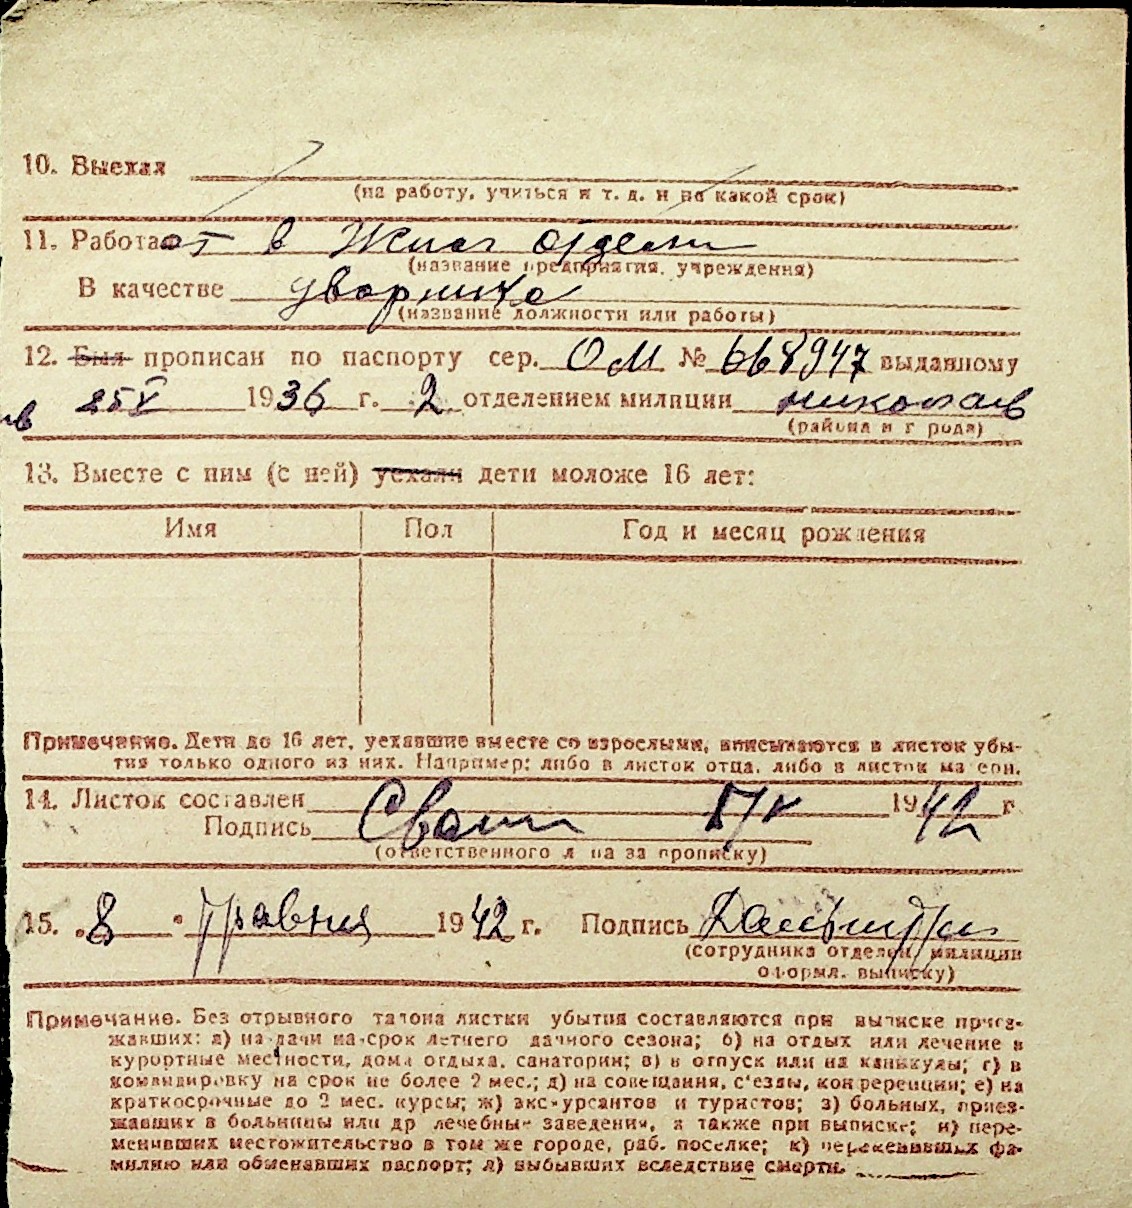 10. Выехал
(на работу, учиться и т. д. и на какой срок)
11. Работает в Жил отделе
(название предприятия, учреждения)
В качестве дворника
(название должности или работы)
12. Был прописан по паспорту сер. ОМ № 668947 выданному
25 V 1936 г. 2 отделением милиции Николаев
(района и города)
13. Вместе с ним (с ней) уехали дети моложе 16 лет:
Имя Пол Год и месяц рождения
Примечание. Дети до 16 лет, уехавшие вместе со взрослыми, вписываются в листок убы-
тия только одного из них. Например: либо в листок отца, либо в листок матери.
14. Листок составлен 1942 г.
Подпись
(ответственного лица за прописку)
15. „8" травня 1942 г. Подпись
(сотрудника отделен. милиции
оформл. выписку)
Примечание. Без отрывного талона листки убытия составляются при выписке приез-
жавших: а) на дачи на срок летнего дачного сезона; б) на отдых или лечение в
курортные местности, дома отдыха, санатории; в) в отпуск или на каникулы; г) в
командировку на срок не более 2 мес.; д) на совещания, с'езды, конференции; е) на
краткосрочные до 2 мес. курсы; ж) экскурсантов и туристов; з) больных, приез-
жавших в больницы или др лечебные заведения, а также при выписке; и) пере-
менивших местожительство в том же городе, раб. поселке; к) переменивших фа-
милию или обменавших паспорт; л) выбывших вследствие смерти.